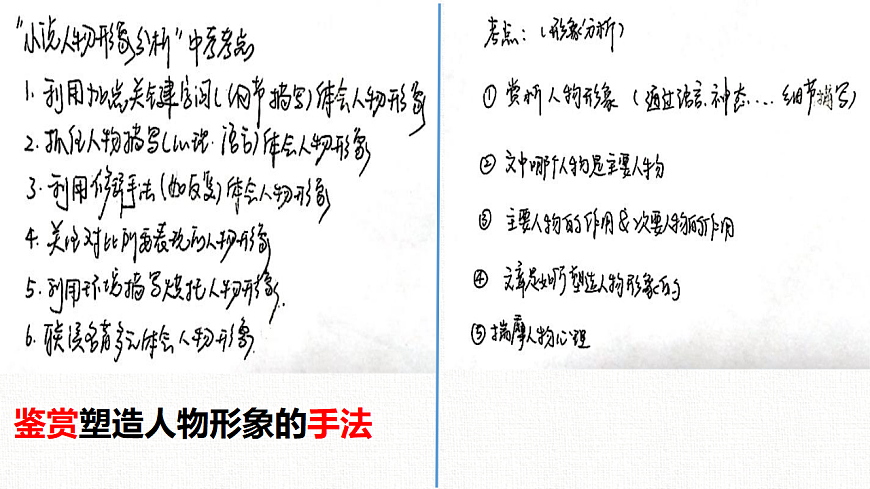 "小说人物形象分析"中考考点
1. 利用加点关键字词(细节描写)体会人物形象
2. 抓住人物描写(心理·语言)体会人物形象
3. 利用修辞手法(如反复)体会人物形象
4. 关注对比所要表现的人物形象
5. 利用环境描写烘托人物形象.
6. 联误名著多元体会人物形象.
鉴赏塑造人物形象的手法
考点:(形象分析)
① 赏析人物形象 (通过语言.神态....细节描写)
② 文中哪个人物是主要人物
③ 主要人物的作用&次要人物的作用
④ 文章是如何塑造人物形象的
⑤ 揣摩人物心理